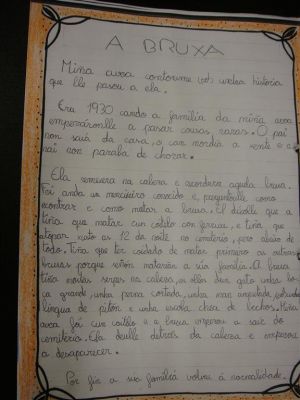 A BRUXA
Miña avoa contoume unha historia
que lle pasou a ela.
Era 1930 cando a familia da miña avoa
empezáronlle a pasar cousas raras. O pai
non saía da casa, o can mordía a xente e a
nai non paraba de chorar.
Ela na cabeza e aquela bruxa.
Foi onda un conocido e, preguntoulle como
econtrar e como matar a bruxa. El díxolle que a
tiña que matar cun coitelo con , e tiña que
atopar xusto ás 12 da noite no cemiterio, pero abaixo de
todo. Tiña que ter coidado de matar primeiro as outras
bruxas porque señón matarían a súa familia. A bruxa
tiña moitas serpes na cabeza, os ollos dun gato unha bo
ca grande, unha perna cortada, unha man amputada,
lingua de pitón e unha escoba chea de bechos. Miña
avoa foi cun coitelo e a bruxa empezou a saír do
cemiterio. Ela deulle detrás da cabeza e empezou
a desaparecer.
Por fin a súa familia volveu á normalidade.